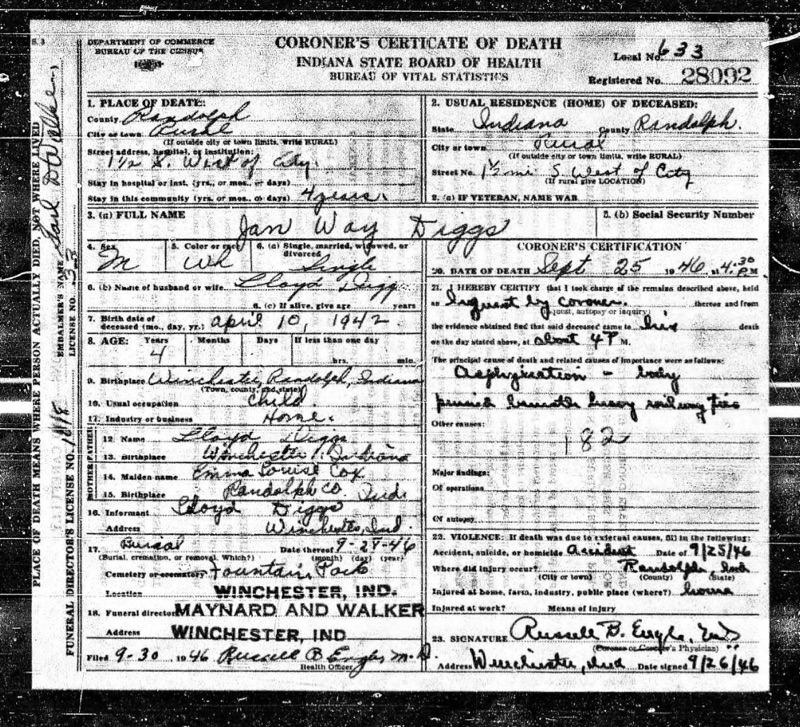 DEPARTMENT OF COMMERCE
BUREAU OF THE CENSUS
CORONER'S CERTICATE OF DEATH
INDIANA STATE BOARD OF HEALTH
BUREAU OF VITAL STATISTICS
Local No. 633
Registered No. 28092
PLACE OF DEATH MEANS WHERE PERSON ACTUALLY DIED, NOT WHERE LIVED
EMBALMER'S NAME
LICENSE NO. 33
FUNERAL DIRECTOR'S LICENSE NO.
1. PLACE OF DEATH:
County Randolph
City or town Rural
(If outside city or town limits, write RURAL)
Street address, hospital, or institution:
1½ S. West of City.
Stay in hospital or inst. (yrs., or mos., or days)
Stay in this community (yrs., or mos., or days) 4 years.
2. USUAL RESIDENCE (HOME) OF DECEASED:
State Indiana County Randolph.
City or town Rural
(If outside city or town limits, write RURAL)
Street No. 1½ mi S. West of City
(If rural give LOCATION)
2. (a) IF VETERAN, NAME WAR
3. (a) FULL NAME Jan Way Diggs
3. (b) Social Security Number
4. Sex M
5. Color or race Wh
6. (a) Single, married, widowed, or divorced Single
6. (b) Name of husband or wife Lloyd Digg
6. (c) If alive, give age years
7. Birth date of deceased (mo., day, yr.) April 10, 1942.
8. AGE: Years Months Days If less than one day
4 hrs. min.
9. Birthplace Winchester, Randolph, Indiana
(Town, county, and state)
10. Usual occupation Child
11. Industry or business Home.
FATHER
12. Name Lloyd Diggs
13. Birthplace Winchester, Indiana
MOTHER
14. Maiden name Emma Louise Cox
15. Birthplace Randolph Co. Ind.
16. Informant Lloyd Diggs
Address Winchester, Ind
17. Burial Date thereof 9-27-46
(Burial, cremation, or removal. Which?) (month) (day) (year)
Cemetery or crematory Fountain Park
Location WINCHESTER, IND.
18. Funeral director MAYNARD AND WALKER
Address WINCHESTER, IND
Filed 9-30 1946 Russell B Engle, M.D.
Health Officer
CORONER'S CERTIFICATION
20. DATE OF DEATH Sept 25 1946 4:30 P.M.
21. I HEREBY CERTIFY that I took charge of the remains described above, held
an Inquest by coroner. thereon and from
(Inquest, autopsy or inquiry)
the evidence obtained find that said deceased came to his death
on the day stated above, at about 4 P M.
The principal cause of death and related causes of importance were as follows:
Asphyxiation - body
pinned beneath heavy railway ties
Other causes:
182
Major findings:
Of operations
Of autopsy
22. VIOLENCE: If death was due to external causes, fill in the following:
Accident, suicide, or homicide Accident Date of 9/25/46
Where did injury occur? Randolph, Ind
(City or town) (County) (State)
Injured at home, farm, industry, public place (where?) home
Injured at work? Means of injury
23. SIGNATURE Russell B. Engle, M.D.
(Coroner or Coroner's Physician)
Address Winchester, Ind Date signed 9/26/46